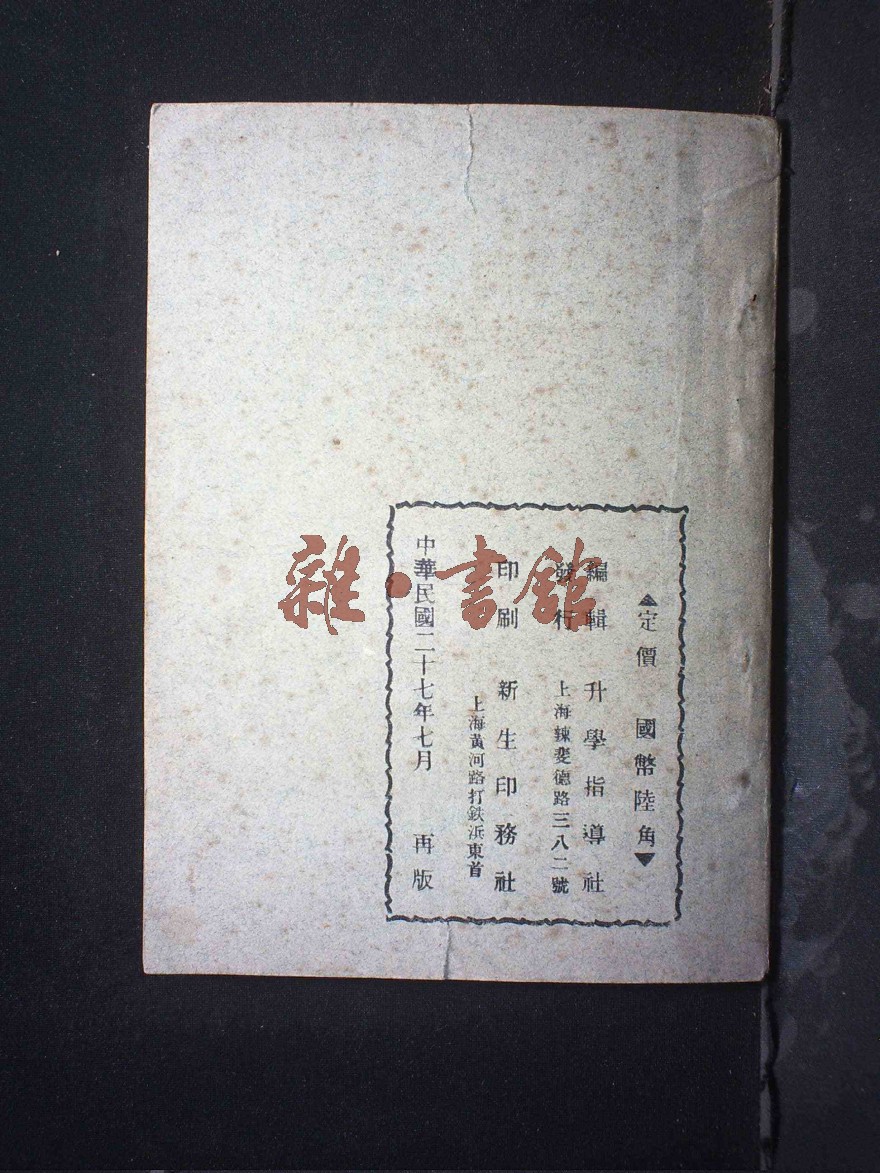 ▲定價 國幣陸角▼
編輯 升學指導社
發行
上海辣斐德路三八二號
印刷 新生印務社
上海黃河路打鉄浜東首
中華民國二十七年七月 再版
雜·書館